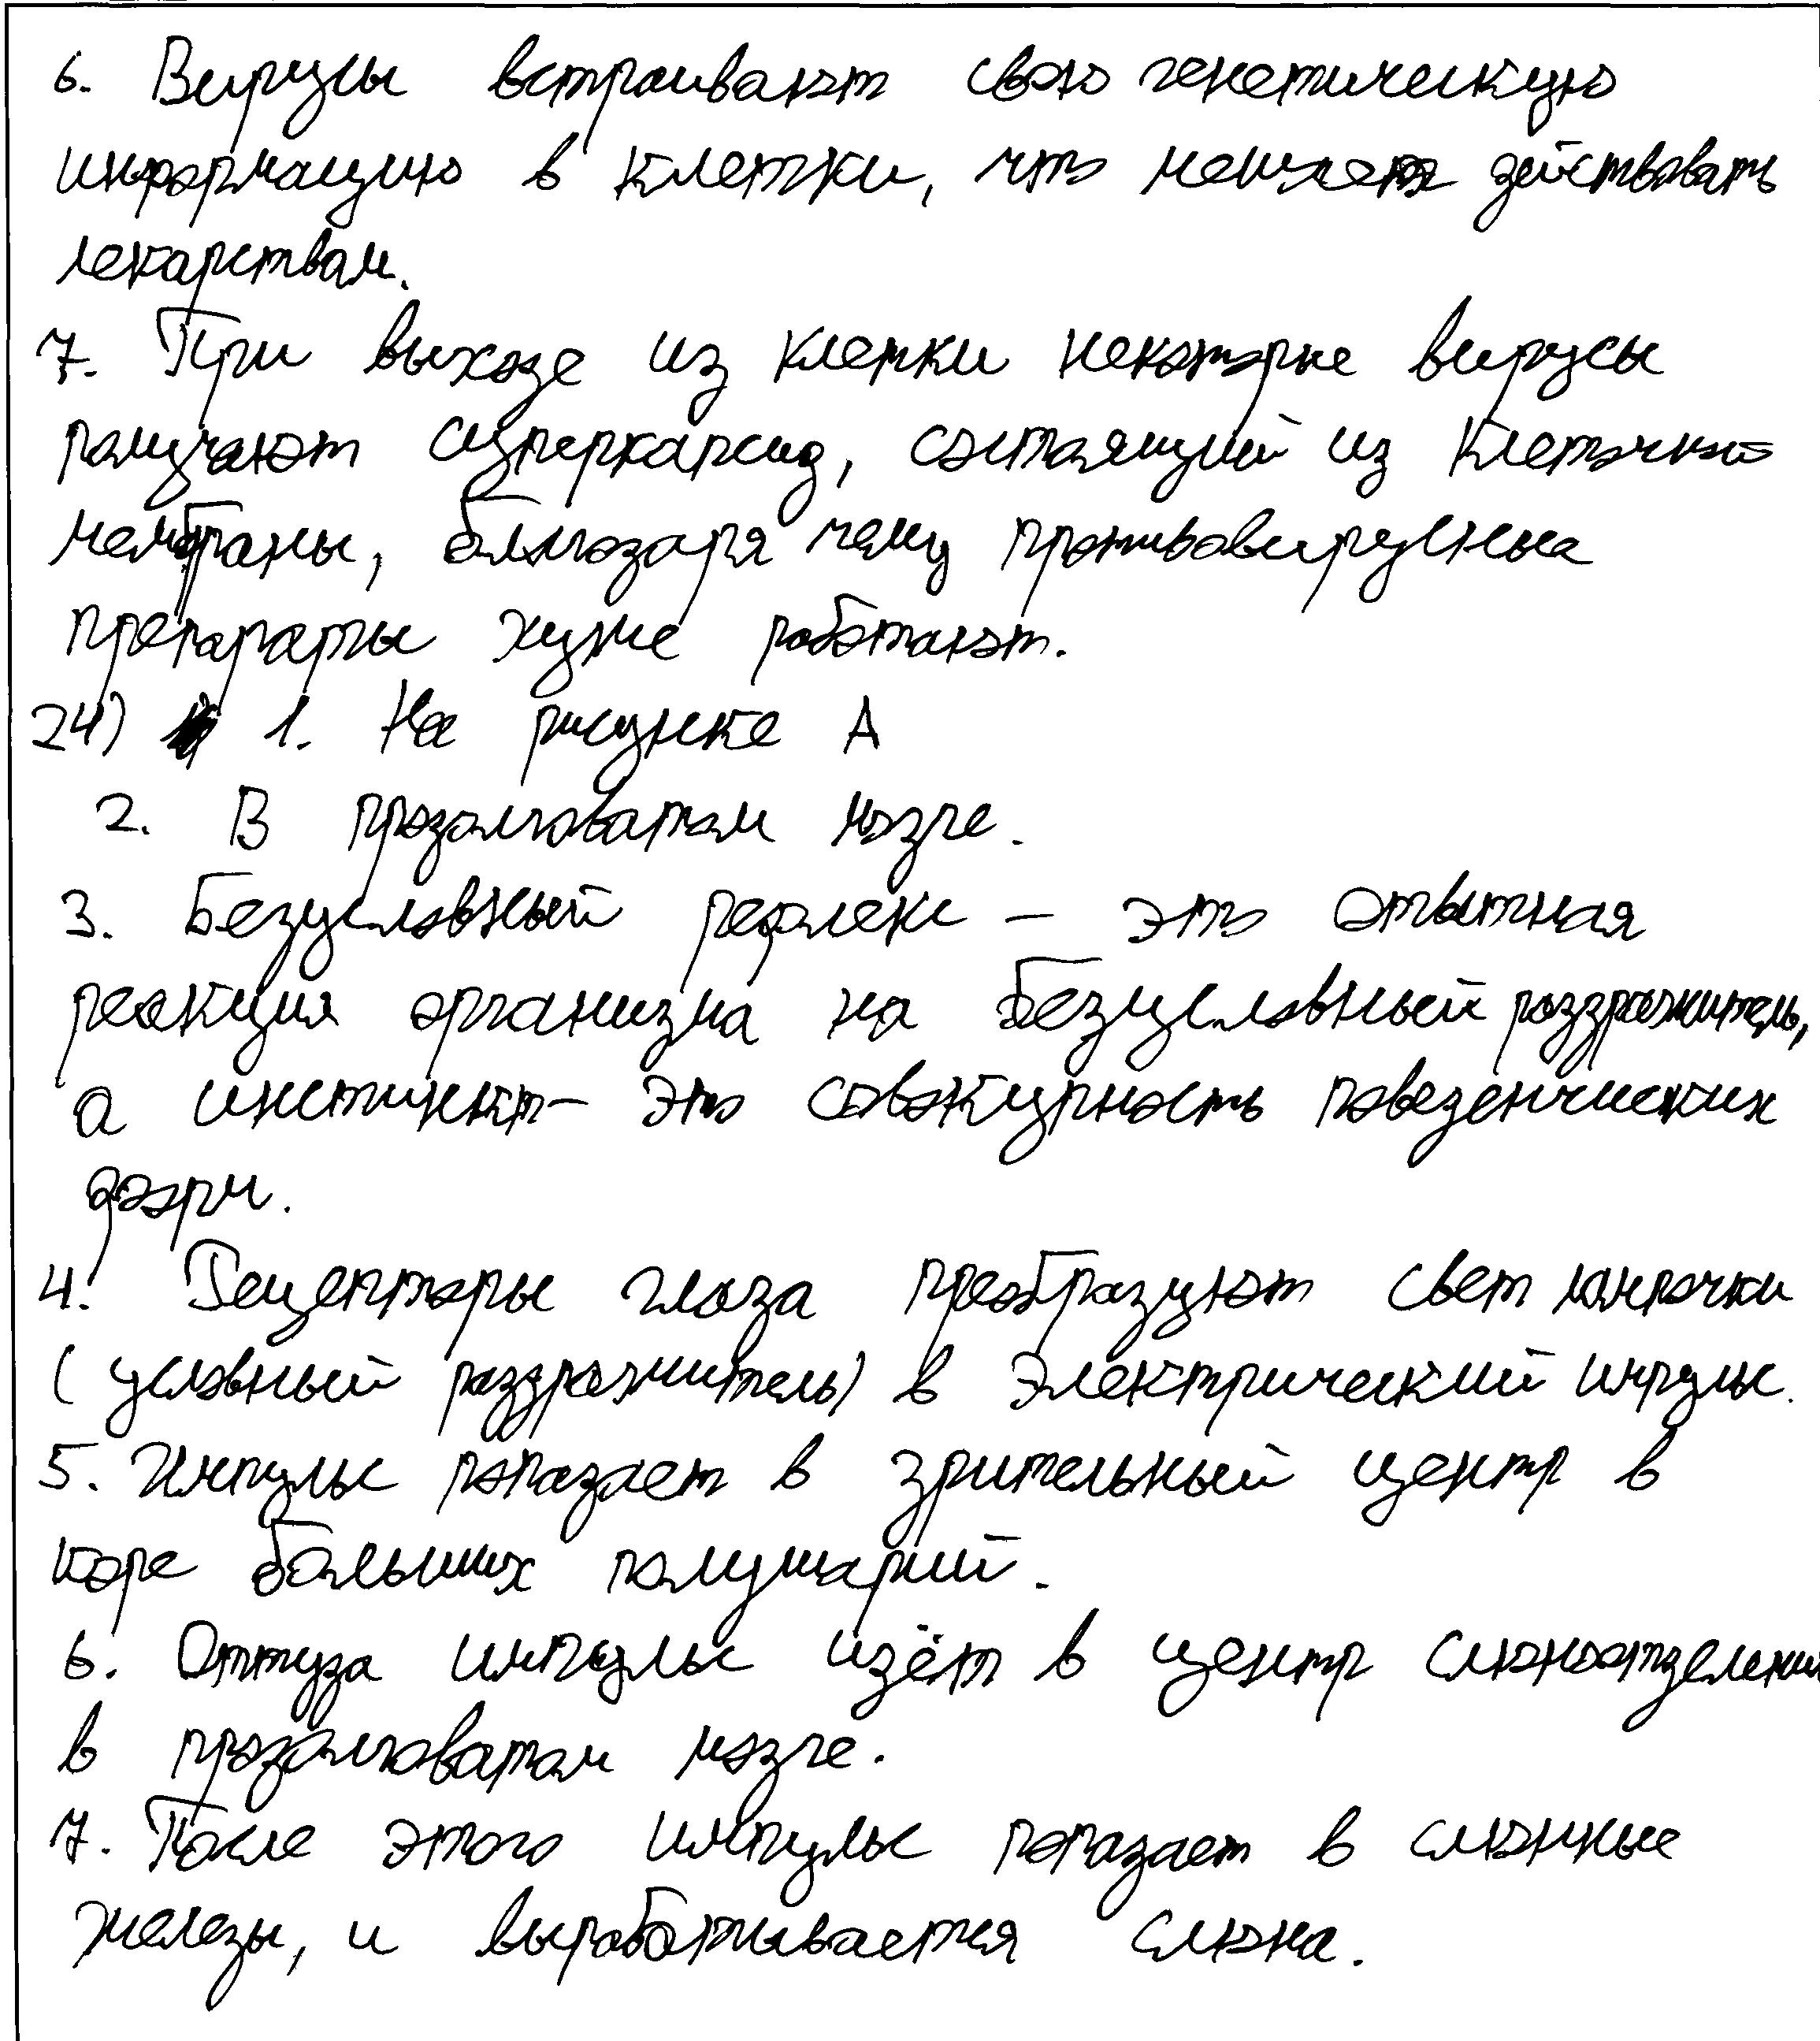 6. Вирусы встраивают свою генетическую
информацию в клетки, что мешает действовать
лекарствам.
7. При выходе из клетки некоторые вирусы
получают суперкапсид, состоящий из клеточной
мембраны, благодаря чему противовирусные
препараты хуже работают.
24) 1. На рисунке А
2. В продолговатом мозге.
3. Безусловный рефлекс – это ответная
реакция организма на безусловный раздражитель,
а инстинкт – это совокупность поведенческих
форм.
4. Рецепторы глаза преобразуют свет лампочки
(условный раздражитель) в электрический импульс.
5. Импульс попадает в зрительный центр в
коре больших полушарий.
6. Оттуда импульс идёт в центр слюноотделения
в продолговатом мозге.
7. После этого импульс попадает в слюнные
железы, и вырабатывается слюна.